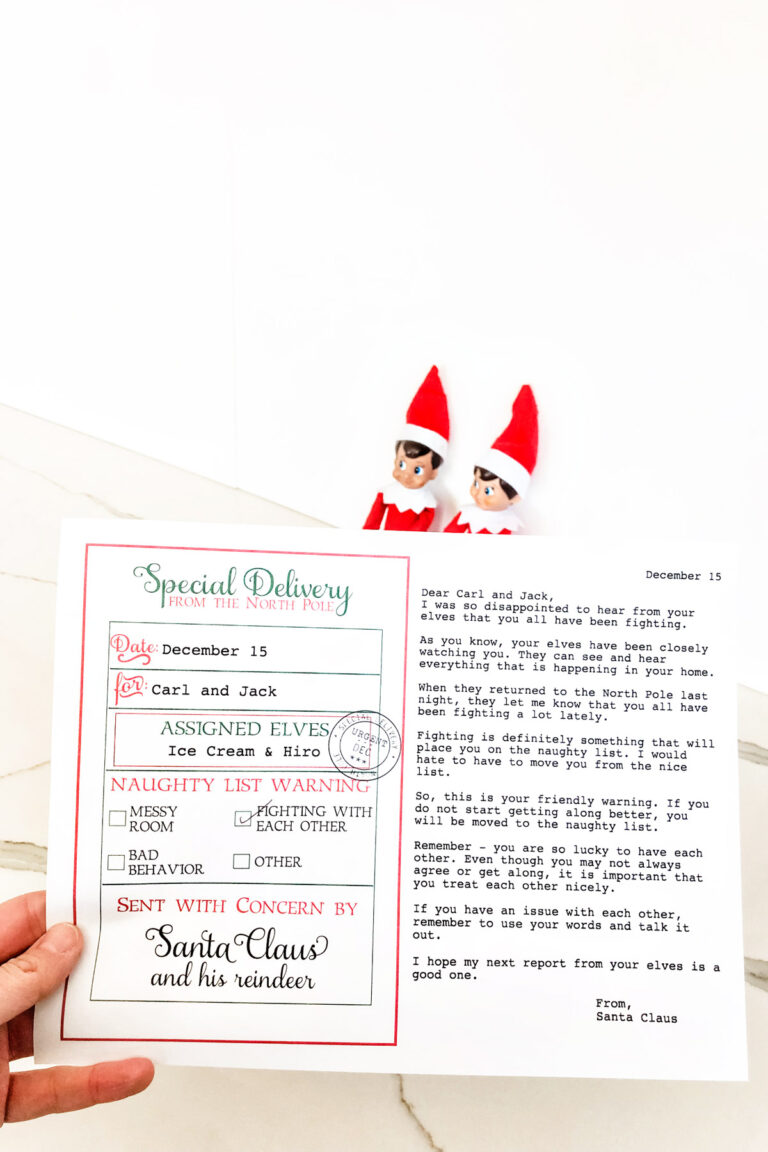 Special Delivery
FROM THE NORTH POLE
Date: December 15
for: Carl and Jack
ASSIGNED ELVES
Ice Cream & Hiro
SPECIAL DELIVERY
URGENT
DEC
***
NAUGHTY LIST WARNING
MESSY
ROOM
FIGHTING WITH
EACH OTHER
BAD
BEHAVIOR
OTHER
SENT WITH CONCERN BY
Santa Claus
and his reindeer
December 15
Dear Carl and Jack,
I was so disappointed to hear from your
elves that you all have been fighting.
As you know, your elves have been closely
watching you. They can see and hear
everything that is happening in your home.
When they returned to the North Pole last
night, they let me know that you all have
been fighting a lot lately.
Fighting is definitely something that will
place you on the naughty list. I would
hate to have to move you from the nice
list.
So, this is your friendly warning. If you
do not start getting along better, you
will be moved to the naughty list.
Remember - you are so lucky to have each
other. Even though you may not always
agree or get along, it is important that
you treat each other nicely.
If you have an issue with each other,
remember to use your words and talk it
out.
I hope my next report from your elves is a
good one.
From,
Santa Claus